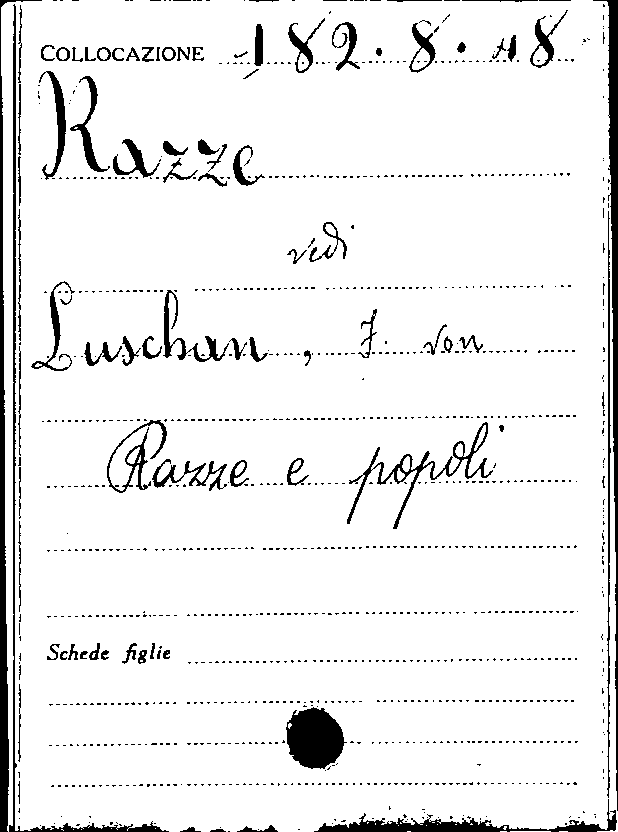 COLLOCAZIONE 182.8.18
Razze
vedi
Luschan, F. von
Razze e popoli
Schede figlie